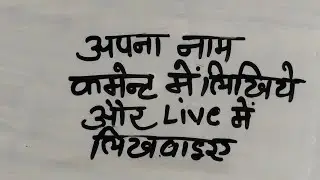 अपना नाम
कमेन्ट में लिखिये
और Live में
लिखवाइए